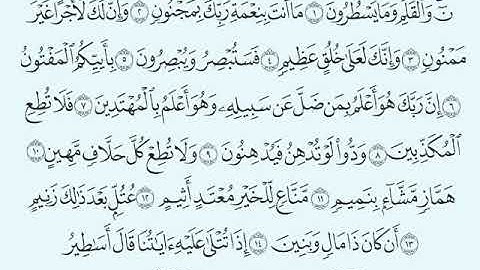 نٓ وَالْقَلَمِ وَمَا يَسْطُرُونَ ۝١ مَا أَنتَ بِنِعْمَةِ رَبِّكَ بِمَجْنُونٍ ۝٢ وَإِنَّ لَكَ لَأَجْرًا غَيْرَ
مَمْنُونٍ ۝٣ وَإِنَّكَ لَعَلَىٰ خُلُقٍ عَظِيمٍ ۝٤ فَسَتُبْصِرُ وَيُبْصِرُونَ ۝٥ بِأَييِّكُمُ الْمَفْتُونُ
۝٦ إِنَّ رَبَّكَ هُوَ أَعْلَمُ بِمَن ضَلَّ عَن سَبِيلِهِ وَهُوَ أَعْلَمُ بِالْمُهْتَدِينَ ۝٧ فَلَا تُطِعِ
الْمُكَذِّبِينَ ۝٨ وَدُّوا لَوْ تُدْهِنُ فَيُدْهِنُونَ ۝٩ وَلَا تُطِعْ كُلَّ حَلَّافٍ مَّهِينٍ ۝١٠
هَمَّازٍ مَّشَّاءٍ بِنَمِيمٍ ۝١١ مَّنَّاعٍ لِّلْخَيْرِ مُعْتَدٍ أَثِيمٍ ۝١٢ عُتُلٍّ بَعْدَ ذَٰلِكَ زَنِيمٍ
۝١٣ أَن كَانَ ذَا مَالٍ وَبَنِينَ ۝١٤ إِذَا تُتْلَىٰ عَلَيْهِ آيَاتُنَا قَالَ أَسَاطِيرُ